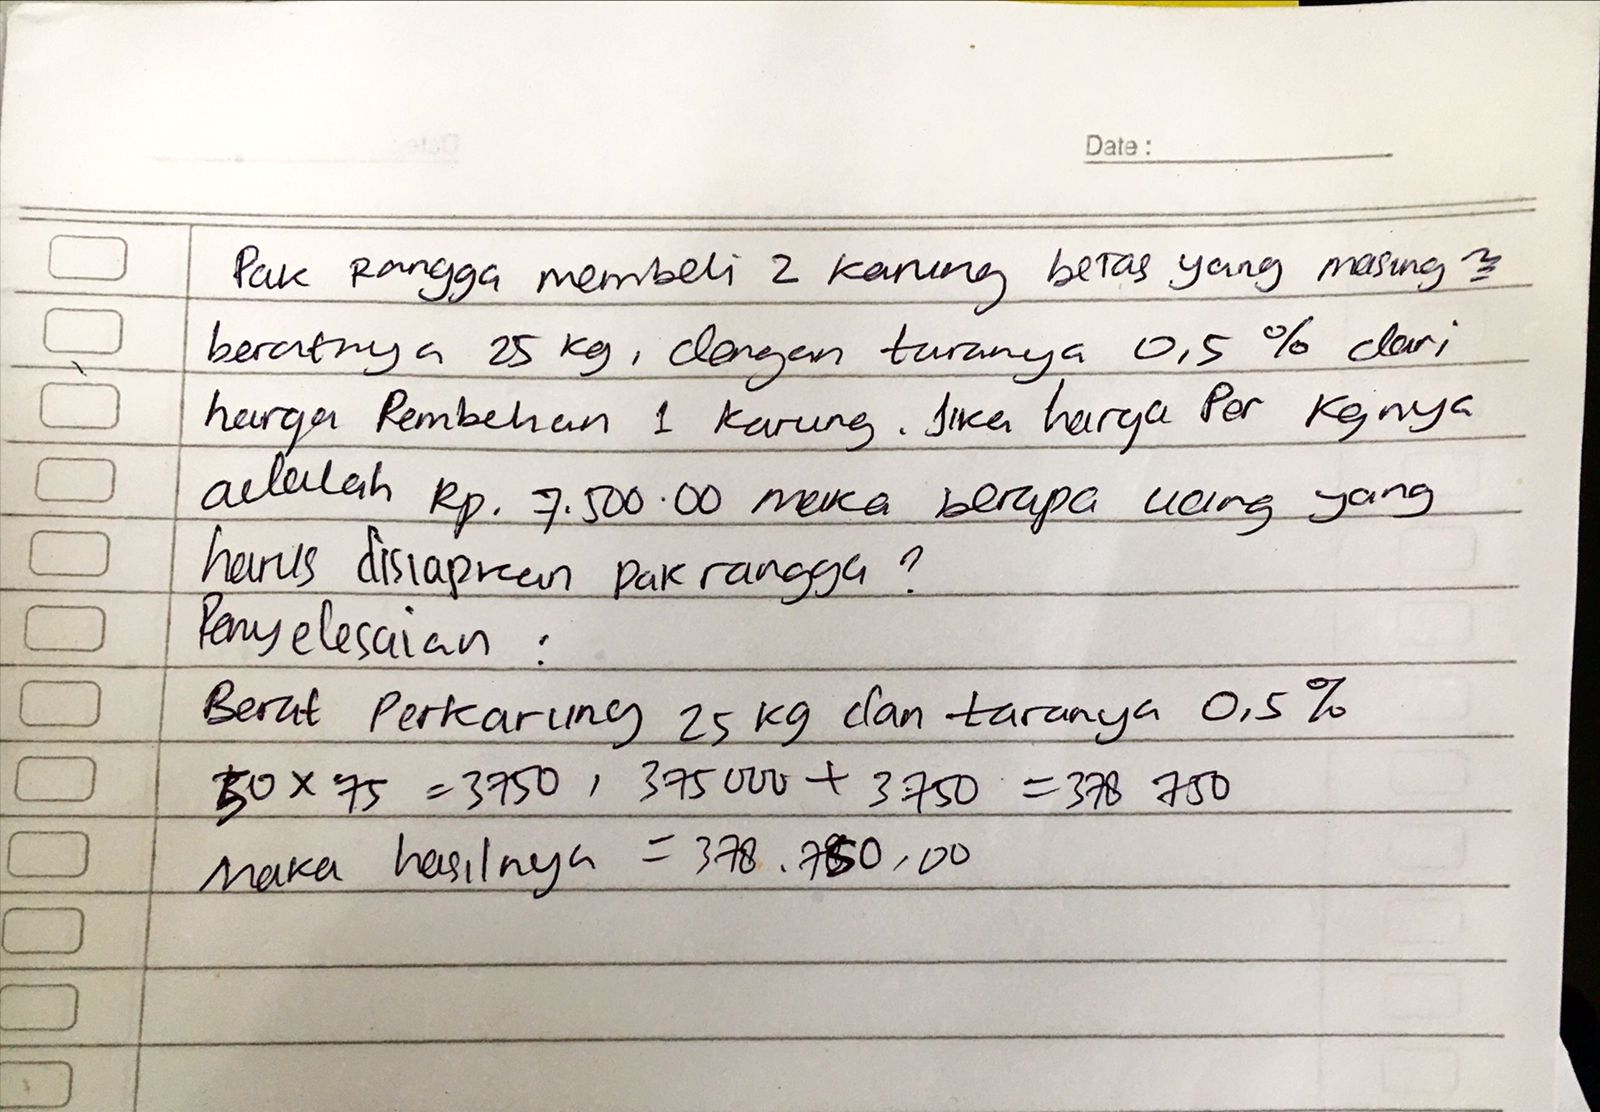 Date :
Pak Rangga membeli 2 karung beras yang masing²
beratnya 25 kg, dengan taranya 0,5 % dari
harga Pembelian 1 karung. Jika harga Per Kgnya
adalah Rp. 7.500.00 maka berapa uang yang
harus disiapkan pak rangga ?
Penyelesaian :
Berat Perkarung 25 kg dan taranya 0,5 %
50 x 75 = 3750 , 375000 + 3750 = 378 750
Maka hasilnya = 378.750,00